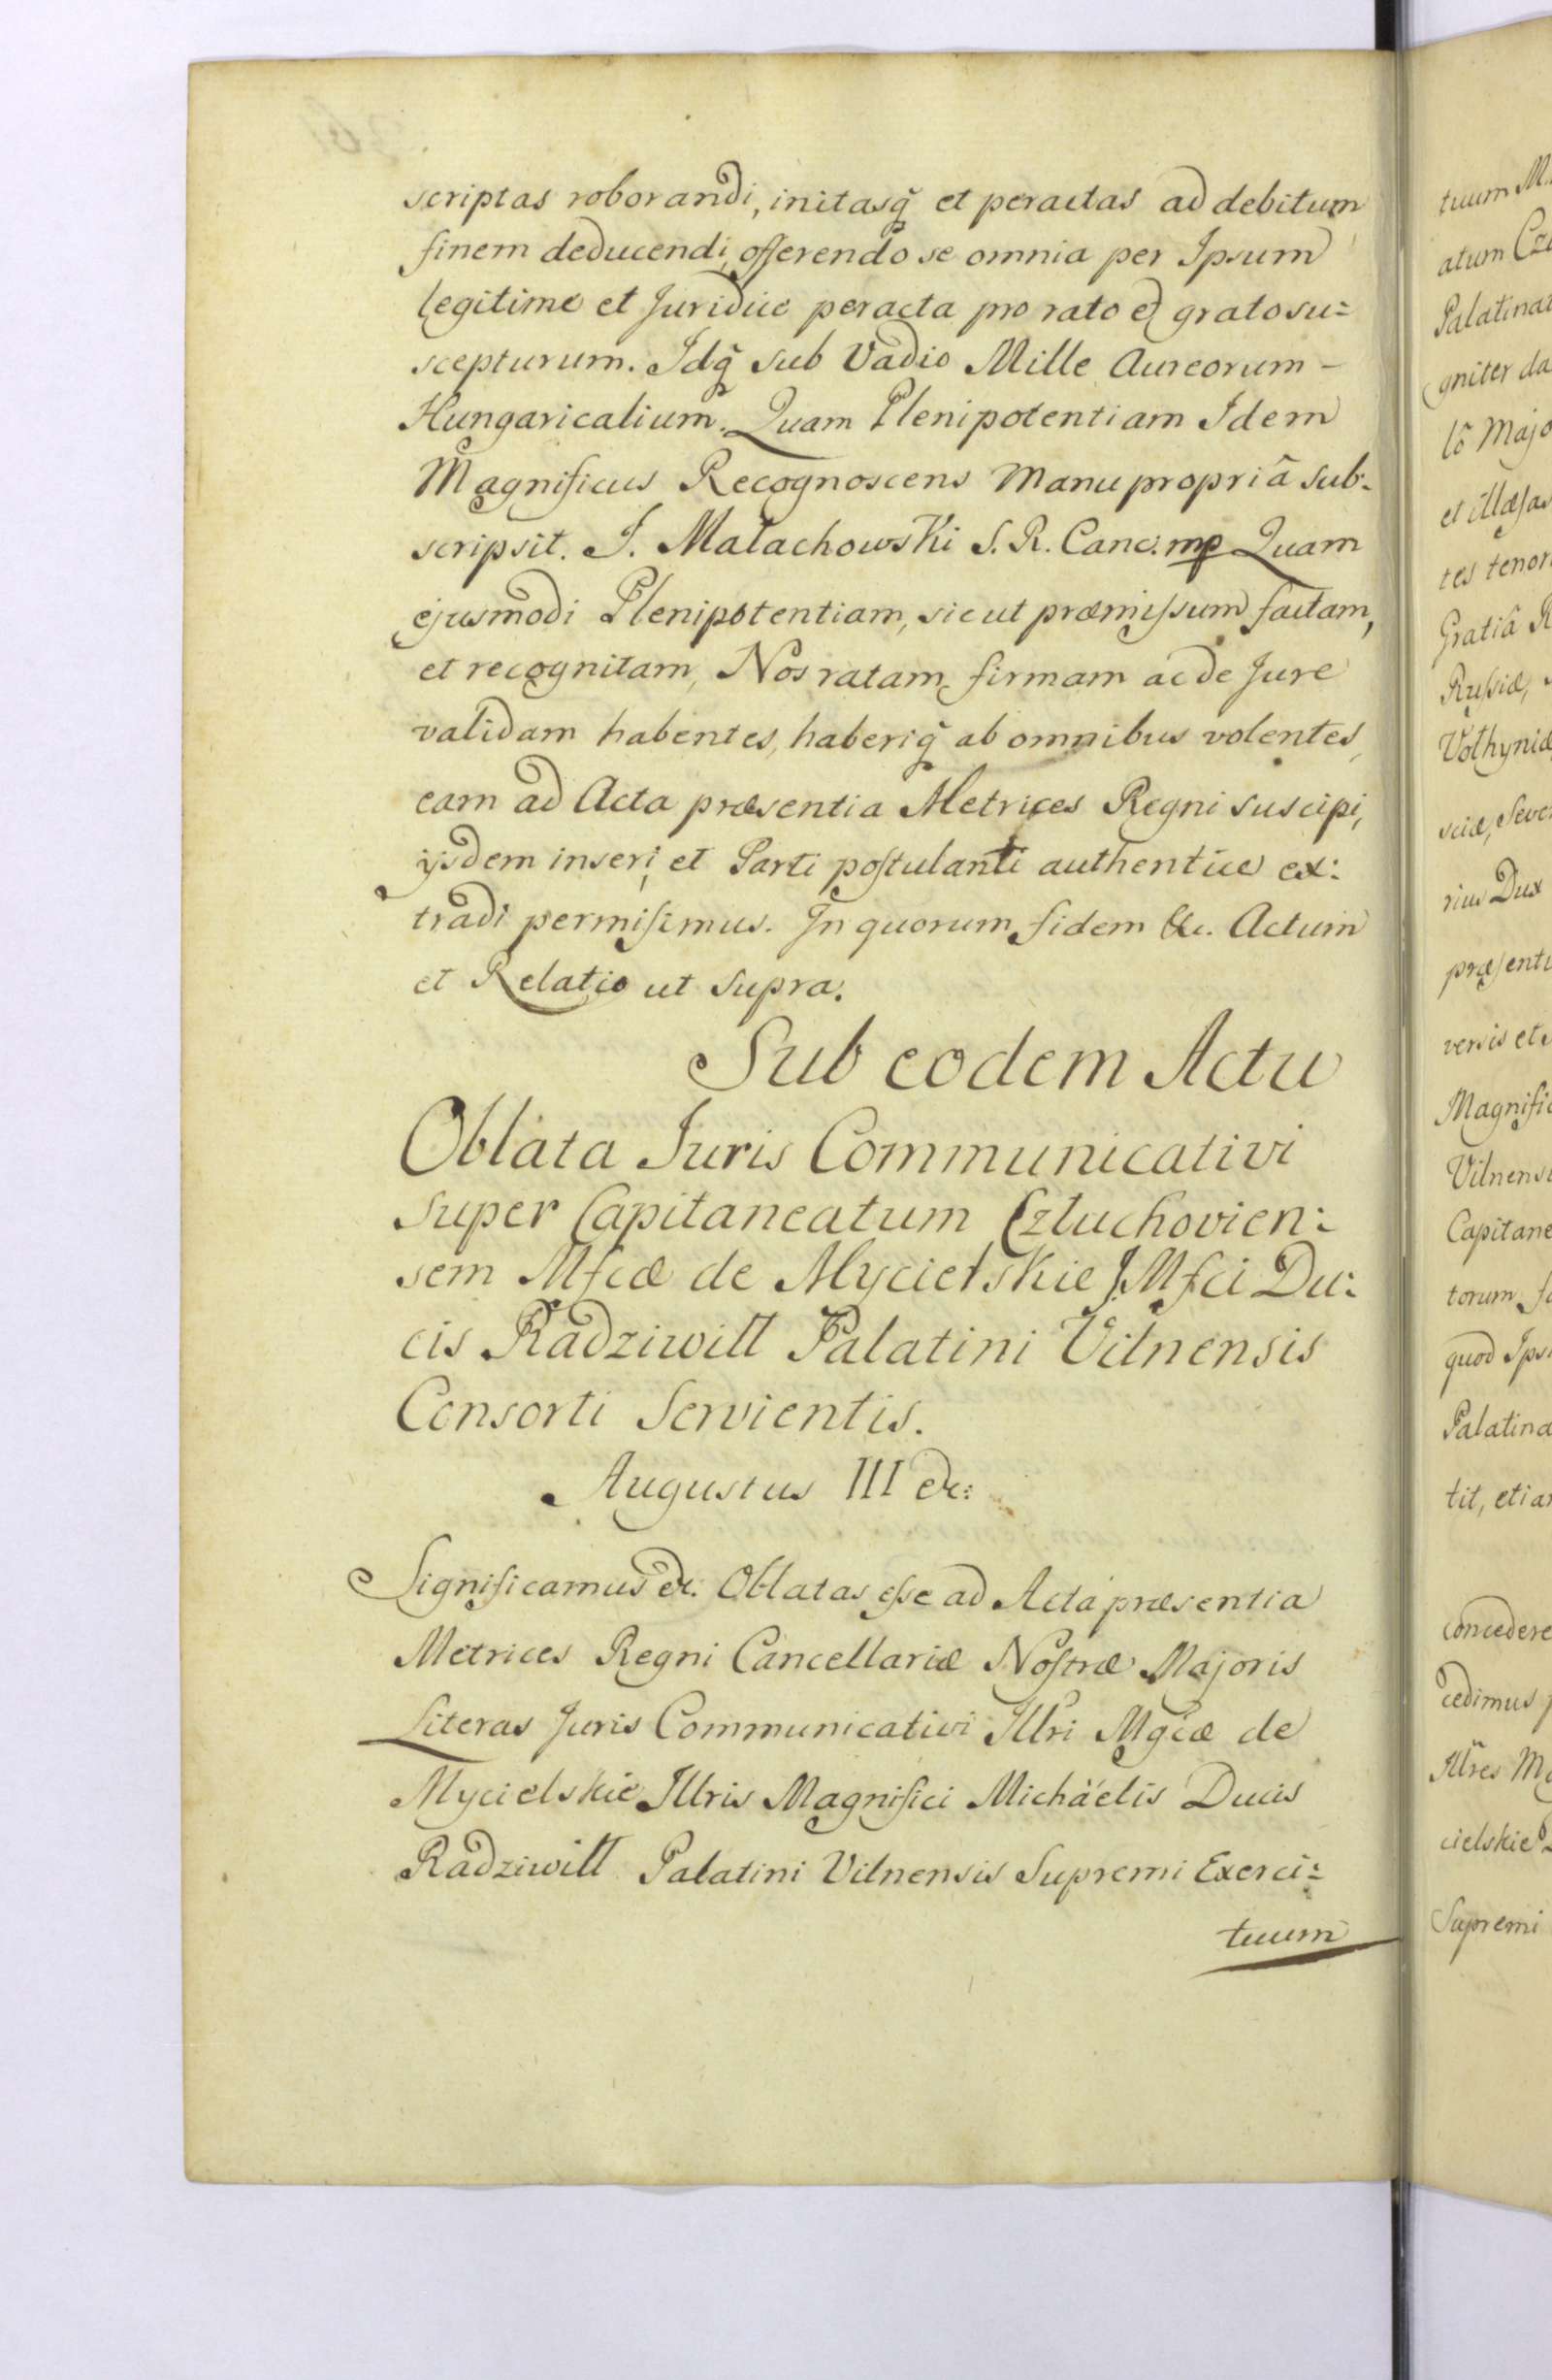 scriptas roborandi, initasq̃ et peractas ad debitum
finem deducendi, offerendo se omnia per Ipsum
legitime et Juridice peracta pro rato et grato su=
scepturum. Idq̃ sub Vadio Mille Aureorum -
Hungaricalium. Quam Plenipotentiam Idem
Magnificus Recognoscens Manu propriâ sub-
scripsit. J. Małachowski S. R. Canc. mp Quam
ejusmodi Plenipotentiam, sicut præmissum factam,
et recognitam, Nos ratam firmam ac de Jure
validam habentes, haberiq̃ ab omnibus volentes,
eam ad Acta præsentia Metrices Regni suscipi,
ijsdem inseri, et Parti postulanti authentice ex:
tradi permisimus. In quorum fidem &c. Actum
et Relatio ut supra.
Sub eodem Actu
Oblata Juris Communicativi
super Capitaneatum Człuchovien:
sem Mfcæ de Mycielskie J. Mfci Du:
cis Radziwiłł Palatini Vilnensis
Consorti Servientis.
Augustus III &c:
Significamus &c. Oblatas esse ad Acta præsentia
Metrices Regni Cancellariæ Nostræ Majoris
Literas Juris Communicativi Illri Mgcæ de
Mycielskie Illris Magnifici Michäelis Ducis
Radziwiłł Palatini Vilnensis Supremi Exerci=
tuum
tuum M.
atum Czł
Palatinat
gniter da
lô Majo
et illæsas
tes tenor
Gratiâ R
Russiæ,
Volhyniæ
sciæ, Seve
rius Dux
præsenti
versis et
Magnific
Vilnensi
Capitane
torum
quod Ipsi
Palatina
tit, etiam
concedere
cedimus
Illres M
cielskie
Supremi